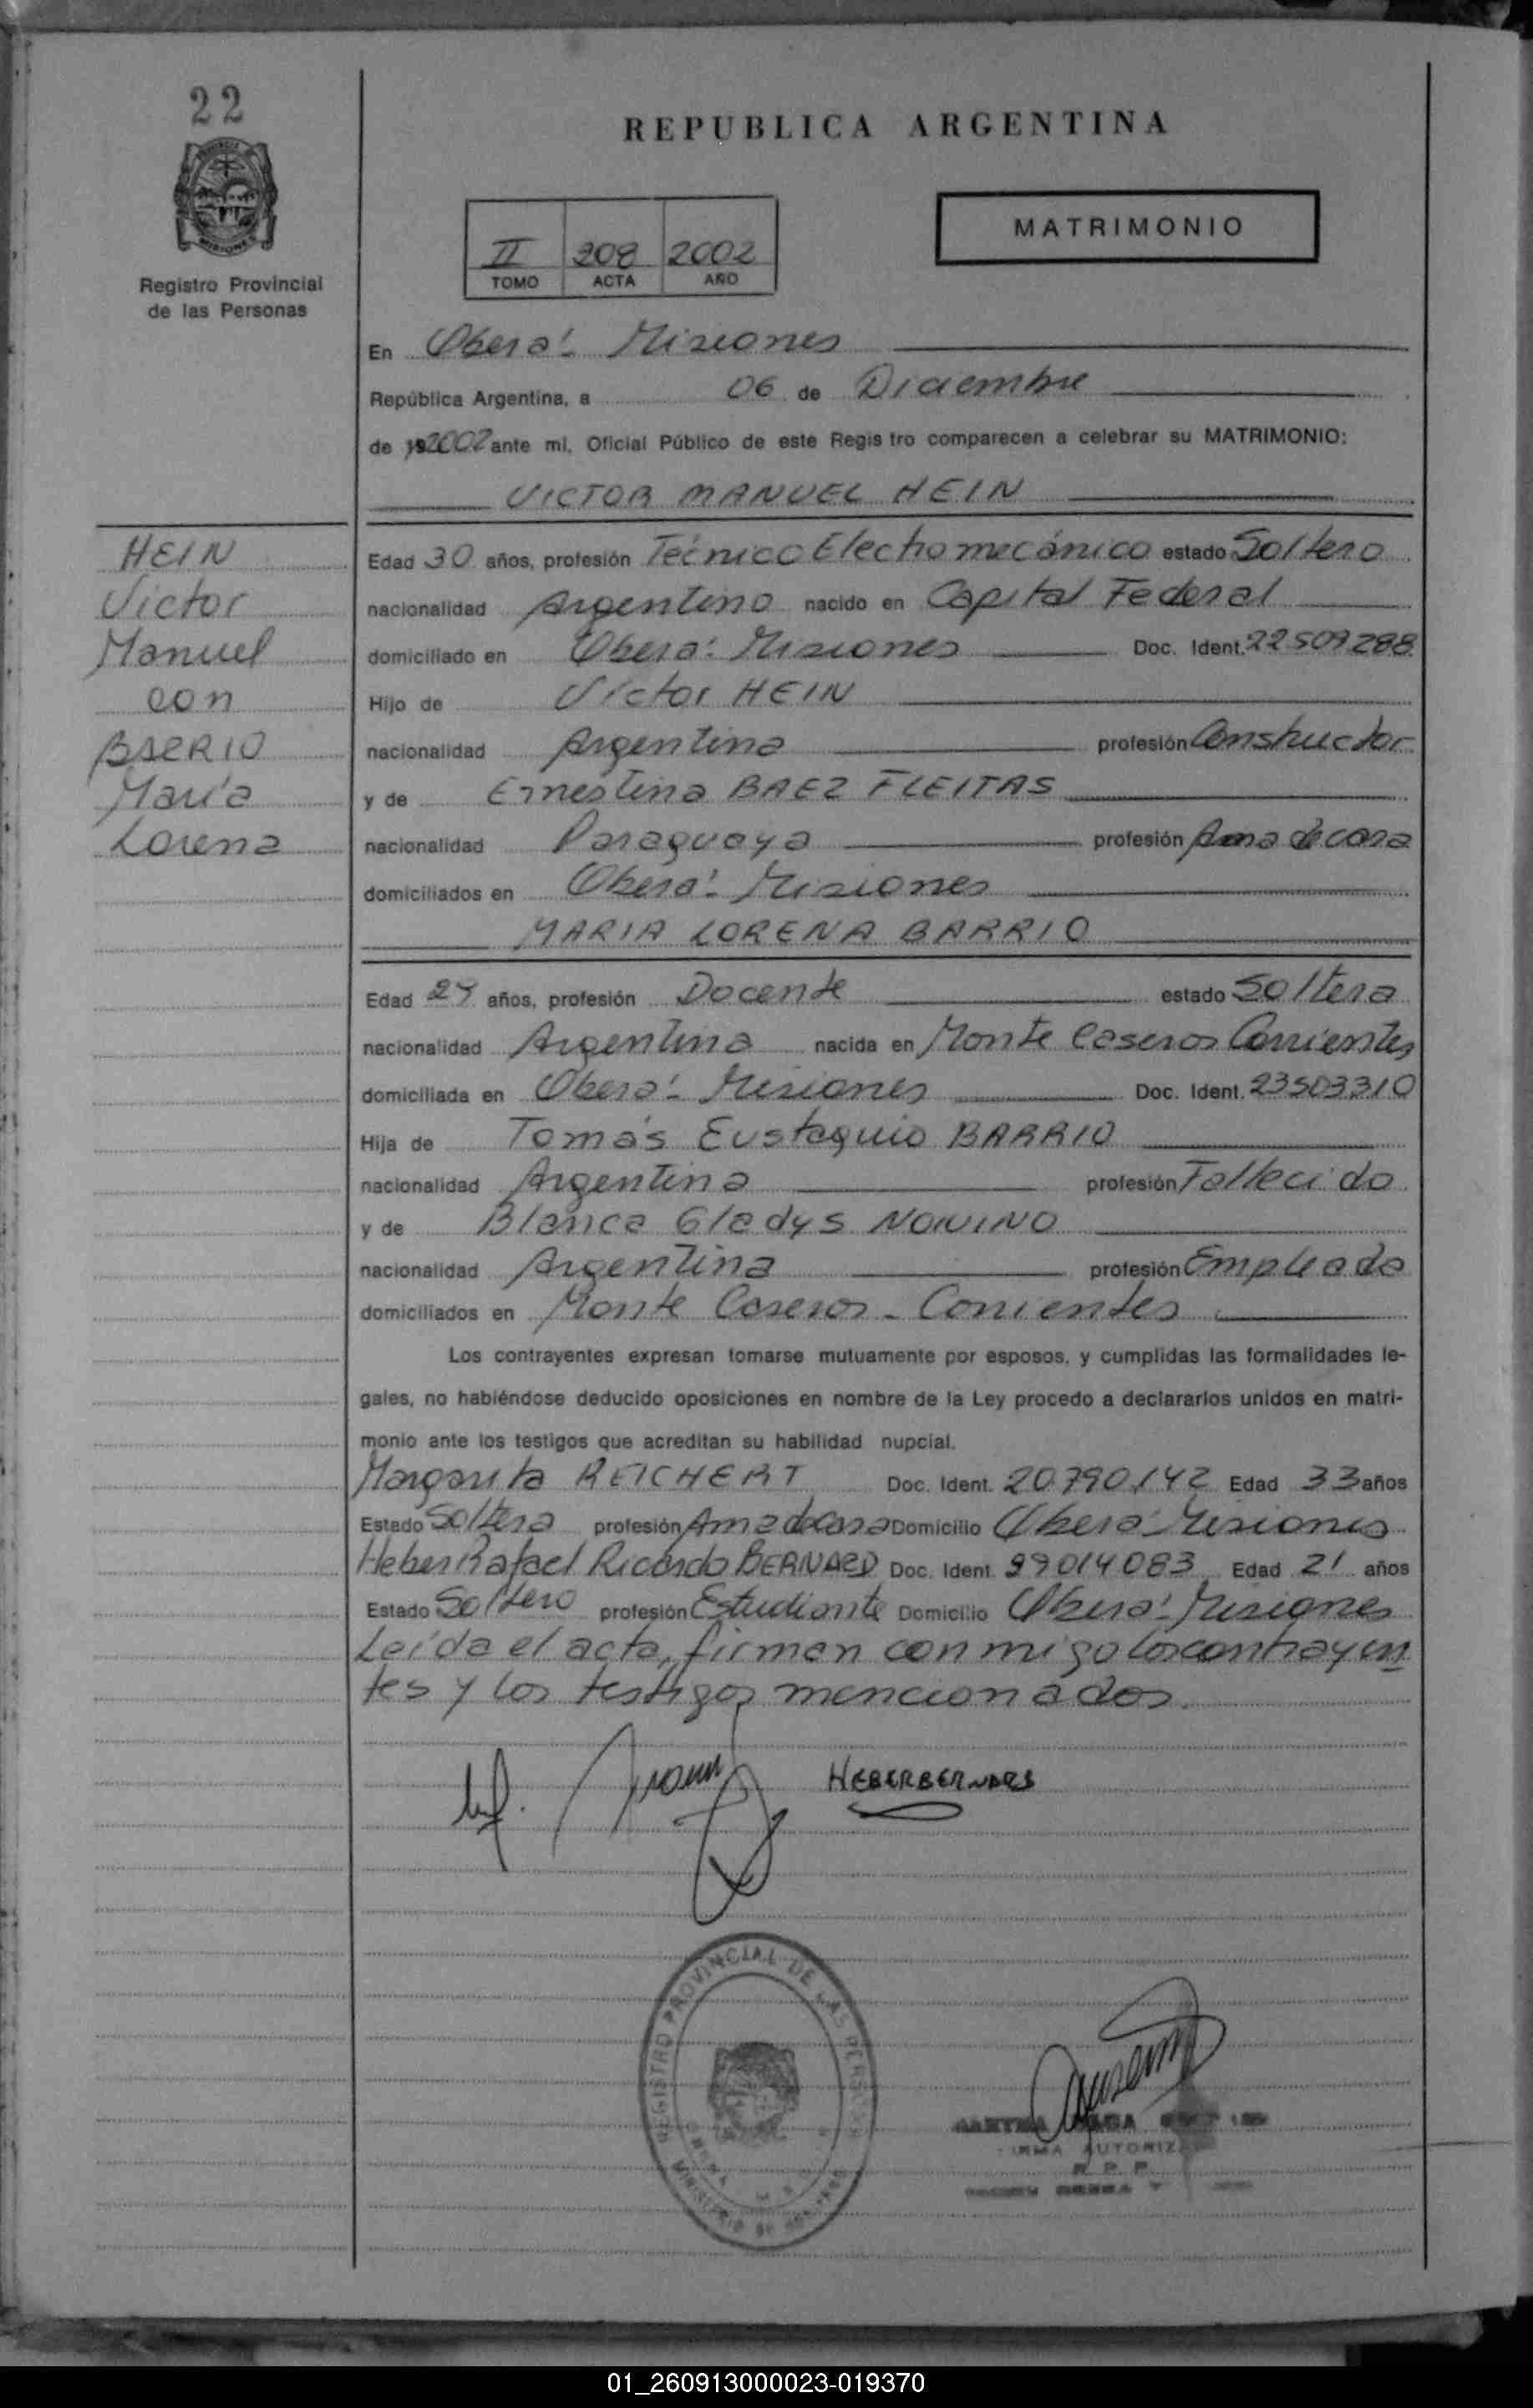 22
REPUBLICA ARGENTINA
MATRIMONIO
II 208 2002
TOMO ACTA AÑO
Registro Provincial
de las Personas
En Oberá - Misiones
República Argentina, a 06 de Diciembre
de 2002 ante mí, Oficial Público de este Regis tro comparecen a celebrar su MATRIMONIO:
VICTOR MANUEL HEIN
HEIN
Victor
Manuel
con
BARRIO
María
Lorena
Edad 30 años, profesión Técnico Electromecánico estado Soltero
nacionalidad Argentino nacido en Capital Federal
domiciliado en Oberá - Misiones Doc. Ident. 22509288
Hijo de Victor HEIN
nacionalidad Argentina profesión Constructor
y de Ernestina BAEZ FLEITAS
nacionalidad Paraguaya profesión Ama de casa
domiciliados en Oberá - Misiones
MARIA LORENA BARRIO
Edad 29 años, profesión Docente estado Soltera
nacionalidad Argentina nacida en Monte Caseros Corrientes
domiciliada en Oberá - Misiones Doc. Ident. 23503310
Hija de Tomás Eustaquio BARRIO
nacionalidad Argentina profesión Fallecido
y de Blanca Gladys NONINO
nacionalidad Argentina profesión Empleada
domiciliados en Monte Caseros - Corrientes
Los contrayentes expresan tomarse mutuamente por esposos, y cumplidas las formalidades le-
gales, no habiéndose deducido oposiciones en nombre de la Ley procedo a declararlos unidos en matri-
monio ante los testigos que acreditan su habilidad nupcial.
Margarita REICHERT Doc. Ident. 20.790.142 Edad 33 años
Estado Soltera profesión Ama de casa Domicilio Oberá - Misiones
Heber Rafael Ricardo BERNARD Doc. Ident. 99014083 Edad 21 años
Estado Soltero profesión Estudiante Domicilio Oberá - Misiones
Leída el acta, firman conmigo los contrayen
tes y los testigos mencionados.
HEBER BERNARD
REGISTRO PROVINCIAL DE LAS PERSONAS
MINISTERIO DE GOBIERNO
FIRMA AUTORIZ
R. P. P.
01_260913000023-019370